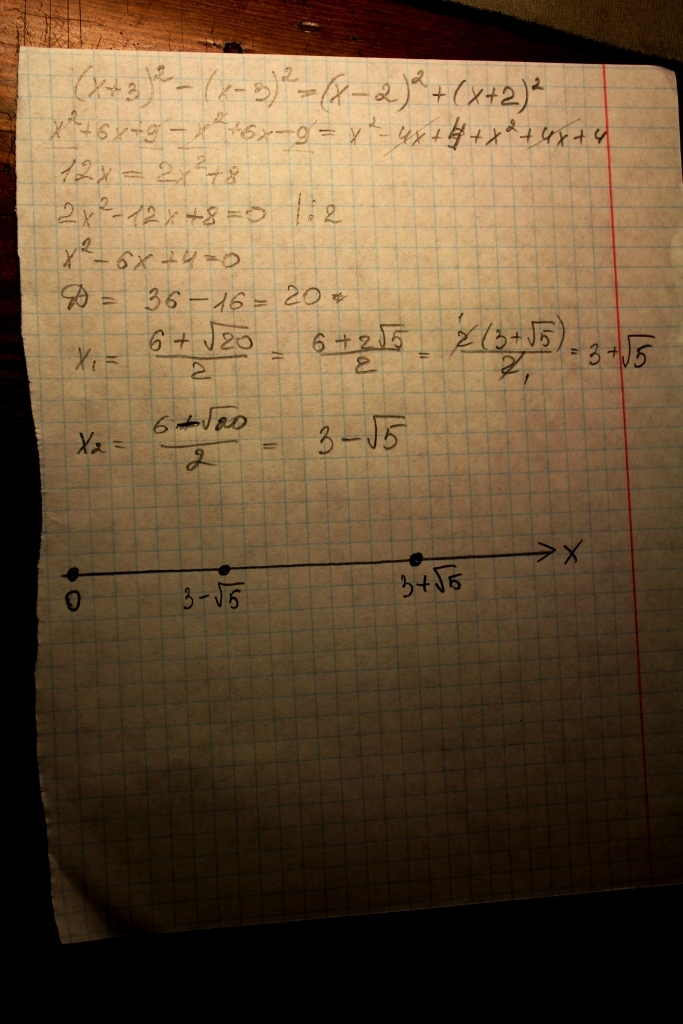 (x+3)² − (x−3)² = (x−2)² + (x+2)²
x²+6x+9 − x²+6x−9 = x²−4x+4+x²+4x+4
12x = 2x²+8
2x²−12x+8=0 |:2
x²−6x+4=0
D = 36−16 = 20
x₁ = (6+√20)/2 = (6+2√5)/2 = 2(3+√5)/2 = 3+√5
x₂ = (6−√20)/2 = 3−√5
0 3−√5 3+√5 x